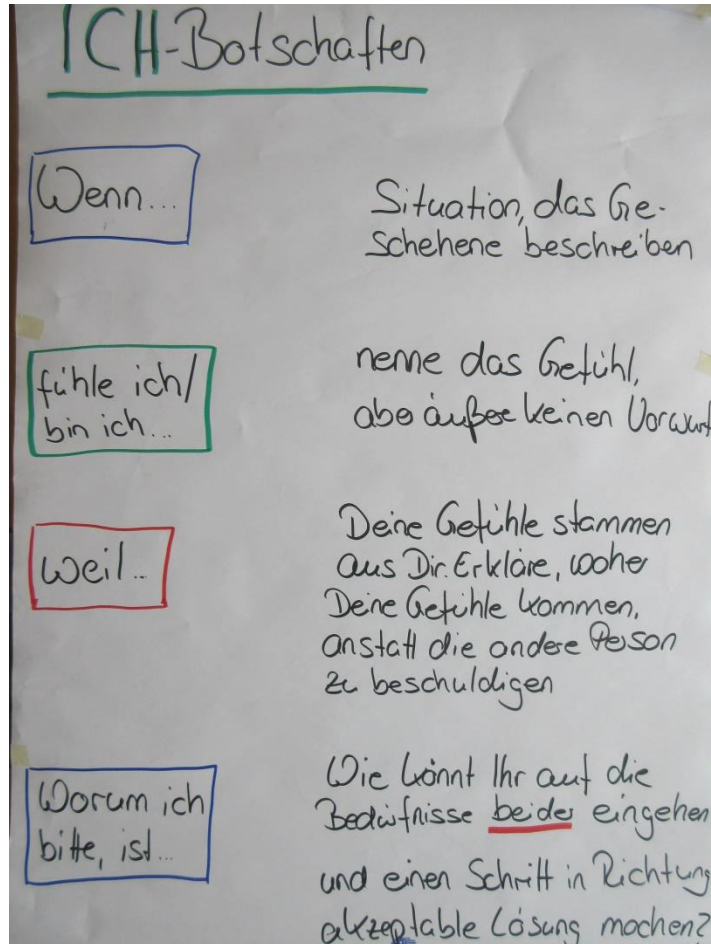 ICH-Botschaften
Wenn...
Situation, das Ge-
schehene beschreiben
fühle ich/
bin ich...
nenne das Gefühl,
aber äußere keinen Vorwurf
weil...
Deine Gefühle stammen
aus Dir. Erkläre, woher
Deine Gefühle kommen,
anstatt die andere Person
zu beschuldigen
Worum ich
bitte, ist...
Wie könnt Ihr auf die
Bedürfnisse beider eingehen
und einen Schritt in Richtung
akzeptable Lösung machen?